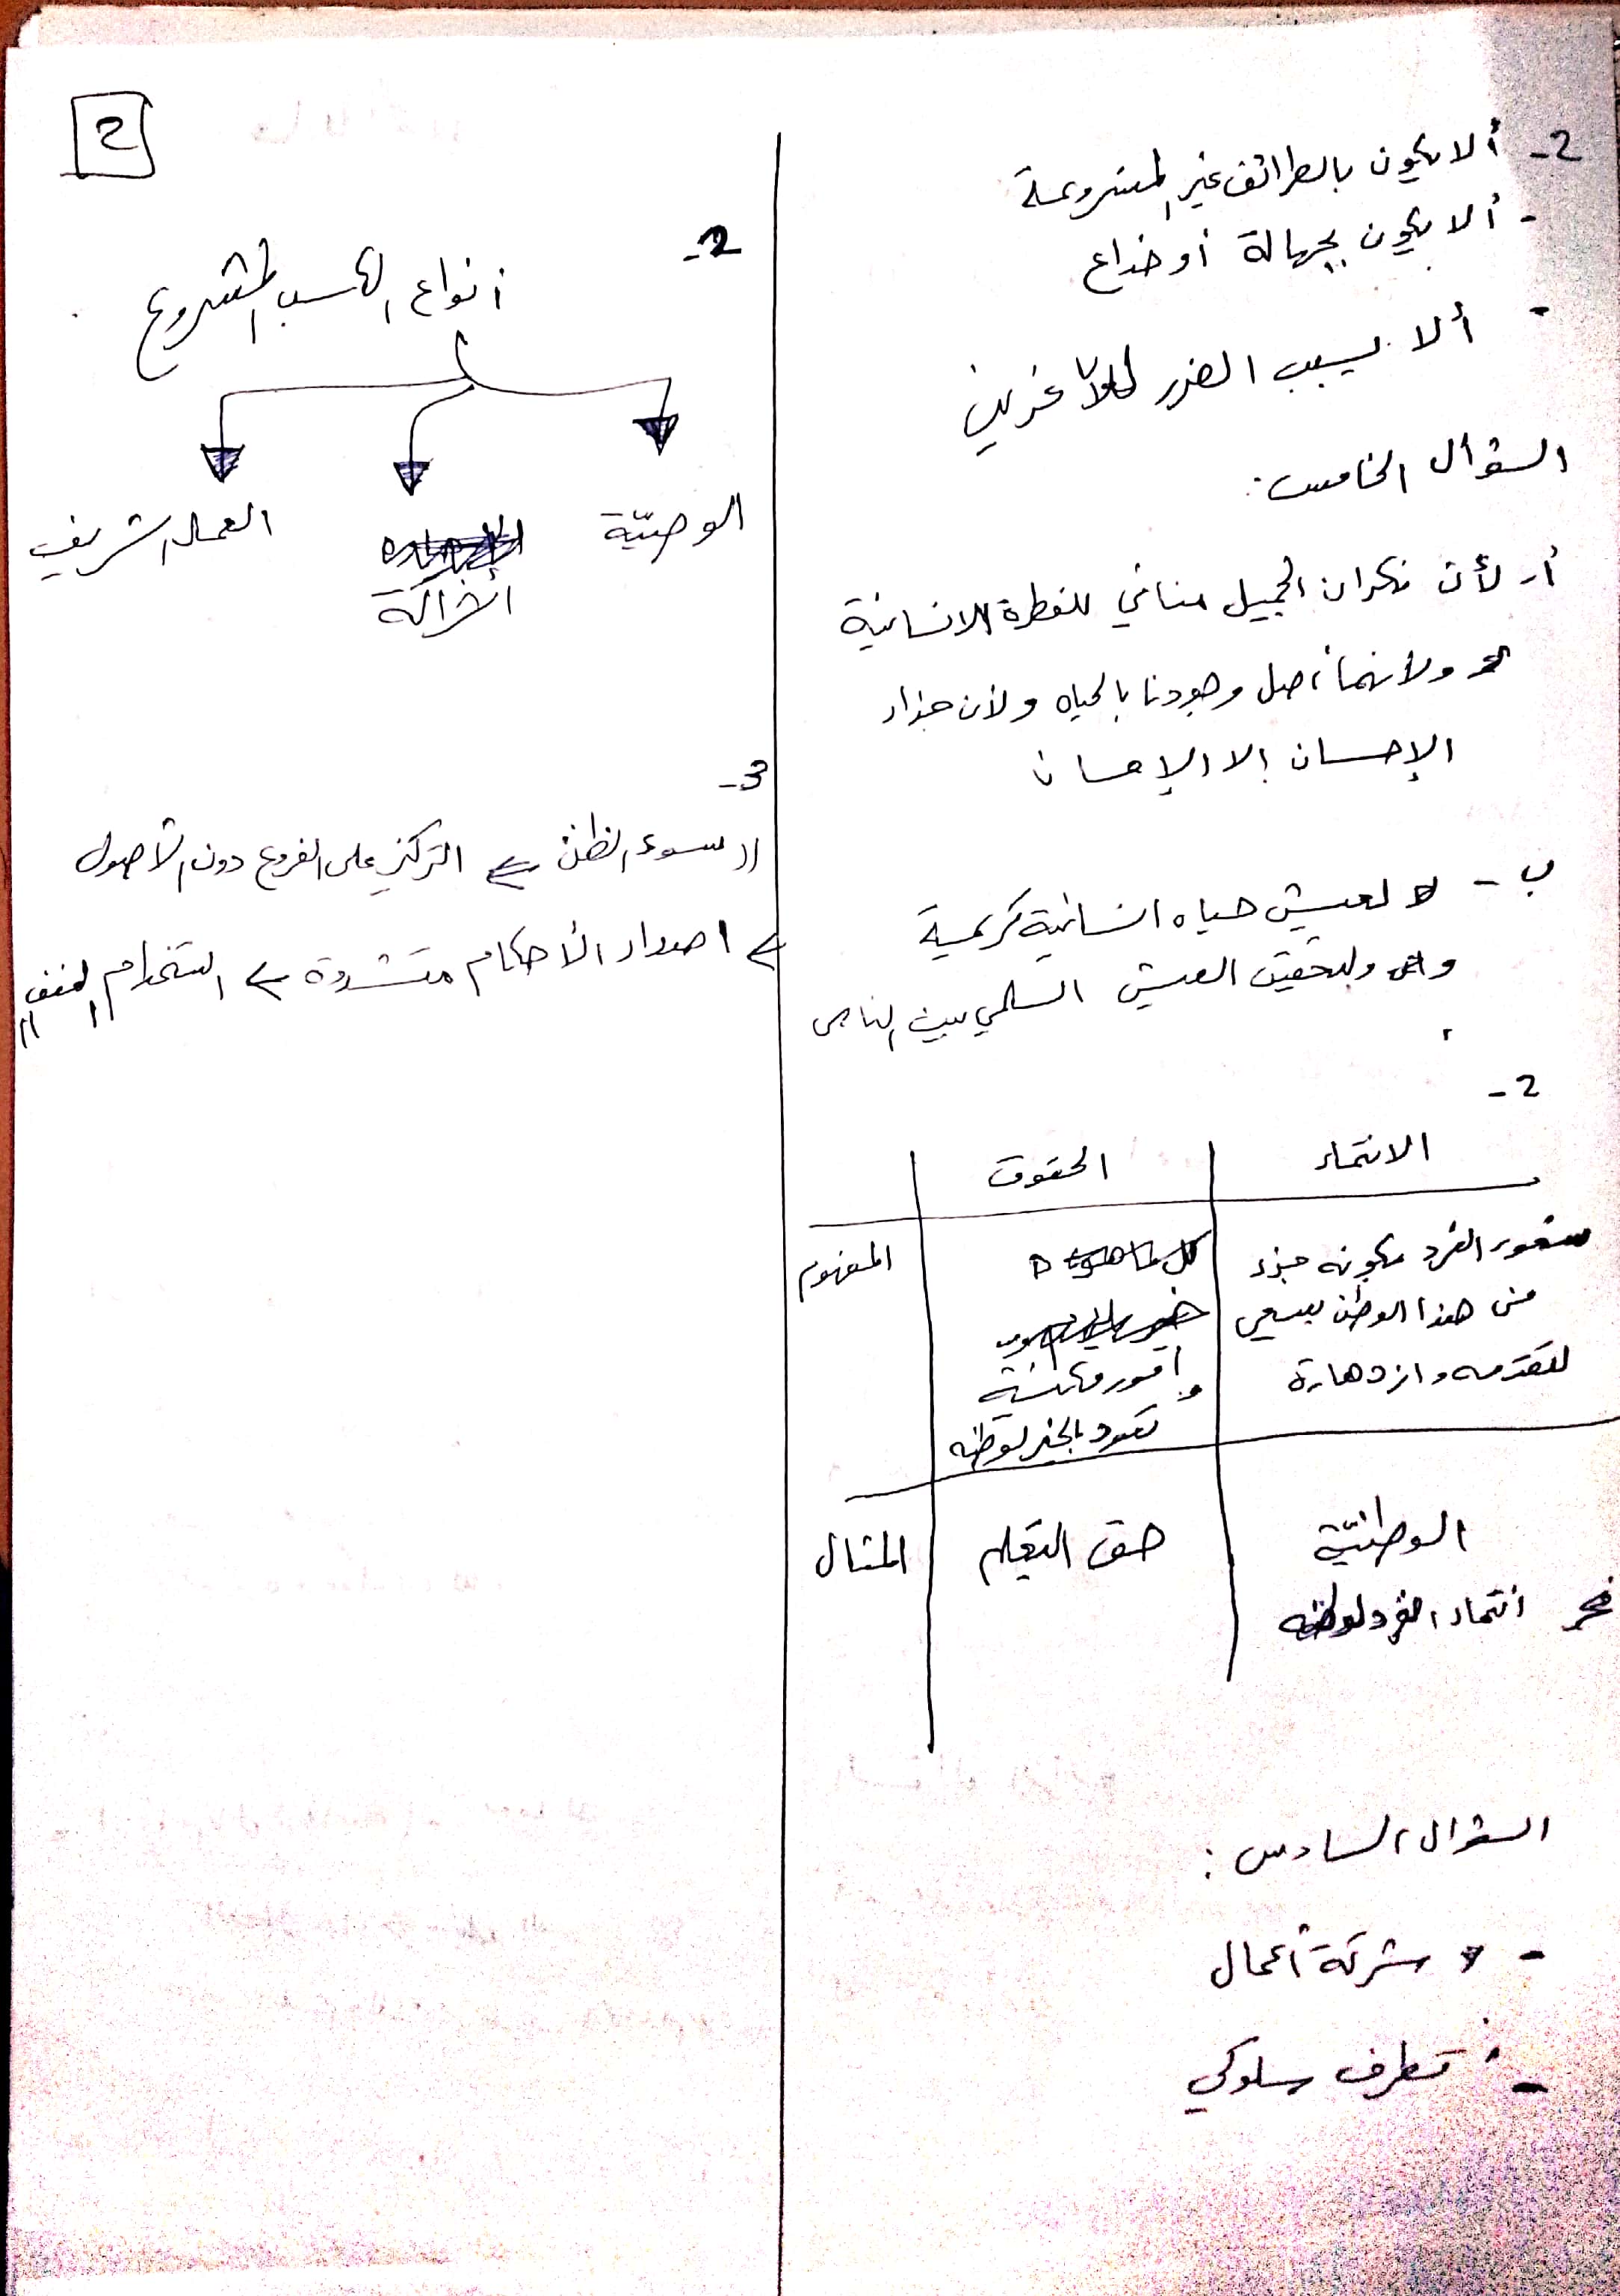 2
2- ألا يكون بالطرائق غير المشروعة
- ألا يكون بجهالة أو خداع
- ألا يسبب الضرر للآخرين
السؤال الخامس:
أ- لأن نكران الجميل منافي للفطرة الانسانية
ولأنهما أصل وجودنا بالحياه ولأن جزاء
الإحسان إلا الإحسان
ب - لعيش حياه انسانية كريمية
ولتحقيق العيش السلمي بين الناس
2-
الانتماء الحقوق
المفهوم
شعور الفرد بكونه جزء
من هذا الوطن يسعى
للتقدمه وازدهارة
أمور
تعود بالخير لوطنه
الوطنيّة حق التعلم المثال
انتماء الفرد لوطنه
السؤال السادس:
- شركة أعمال
- تطرف سلوكي
2-
أنواع الكسب المشروع
الوصيّة الشراكة العمل الشريف
3-
((سوء الظن ← التركيز على الفروع دون الأصول
← اصدار الأحكام متشددة ← استخدام العنف))